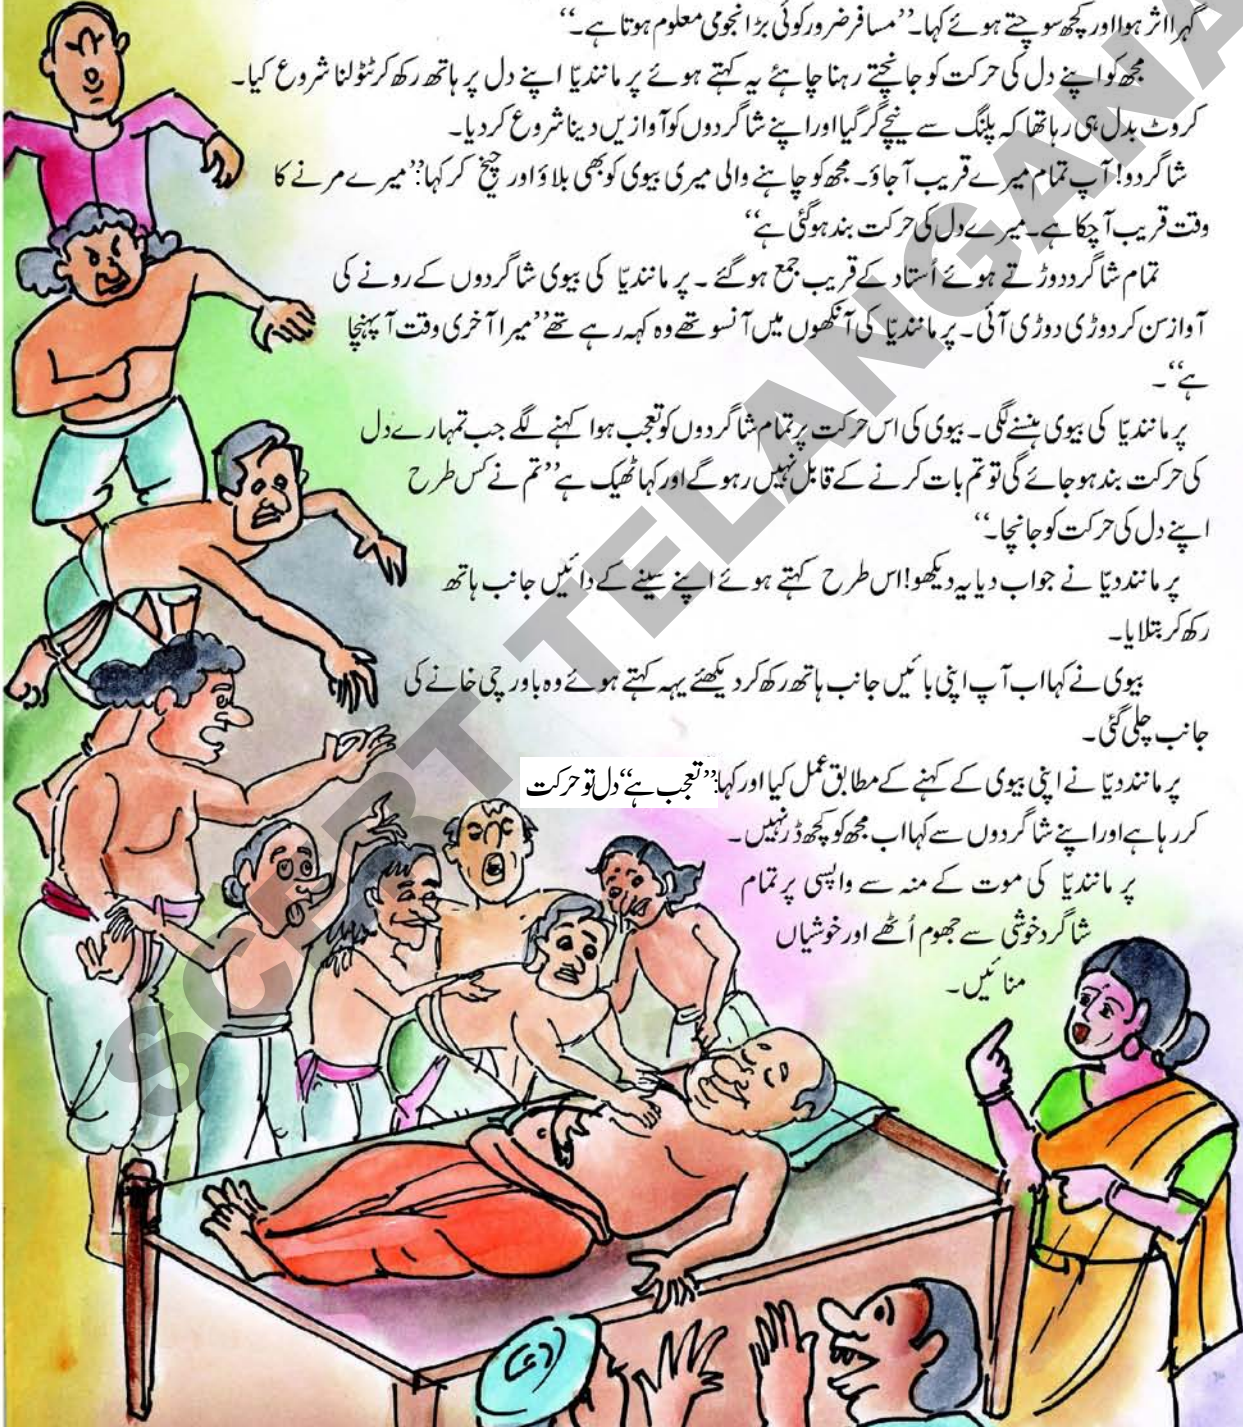 گہرا اثر ہوا اور کچھ سوچتے ہوئے کہا۔ ’’مسافر ضرور کوئی بڑا نجومی معلوم ہوتا ہے۔‘‘
مجھ کو اپنے دل کی حرکت کو جانچتے رہنا چاہئے یہ کہتے ہوئے پرمانندیّا اپنے دل پر ہاتھ رکھ کر ٹٹولنا شروع کیا۔
کروٹ بدل ہی رہا تھا کہ پلنگ سے نیچے گر گیا اور اپنے شاگردوں کو آوازیں دینا شروع کر دیا۔
شاگردو! آپ تمام میرے قریب آجاؤ۔ مجھ کو چاہنے والی میری بیوی کو بھی بلاؤ اور چیخ کر کہا: ’’میرے مرنے کا
وقت قریب آچکا ہے۔ میرے دل کی حرکت بند ہوگئی ہے‘‘
تمام شاگرد دوڑتے ہوئے اُستاد کے قریب جمع ہوگئے۔ پرمانندیّا کی بیوی شاگردوں کے رونے کی
آواز سن کر دوڑی دوڑی آئی۔ پرمانندیّا کی آنکھوں میں آنسو تھے وہ کہہ رہے تھے ’’میرا آخری وقت آپہنچا
ہے‘‘۔
پرمانندیّا کی بیوی ہنسنے لگی۔ بیوی کی اس حرکت پر تمام شاگردوں کو تعجب ہوا کہنے لگے جب تمہارے دل
کی حرکت بند ہو جائے گی تو تم بات کرنے کے قابل نہیں رہو گے اور کہا ٹھیک ہے ’’تم نے کس طرح
اپنے دل کی حرکت کو جانچا۔‘‘
پرمانندیّا نے جواب دیا یہ دیکھو! اس طرح کہتے ہوئے اپنے سینے کے دائیں جانب ہاتھ
رکھ کر بتلایا۔
بیوی نے کہا اب آپ اپنی بائیں جانب ہاتھ رکھ کر دیکھئے یہہ کہتے ہوئے وہ باورچی خانے کی
جانب چلی گئی۔
پرمانندیّا نے اپنی بیوی کے کہنے کے مطابق عمل کیا اور کہا: ’’تعجب ہے‘‘ دل تو حرکت
کر رہا ہے اور اپنے شاگردوں سے کہا اب مجھ کو کچھ ڈر نہیں۔
پرمانندیّا کی موت کے منہ سے واپسی پر تمام
شاگرد خوشی سے جھوم اُٹھے اور خوشیاں
منائیں۔
SCERT TELANGANA